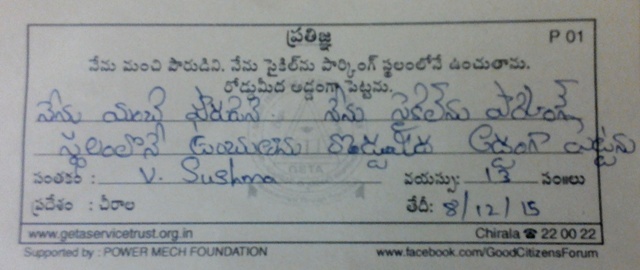 ప్రతిజ్ఞ
P 01
నేను మంచి పౌరుడిని. నేను సైకిల్‌ను పార్కింగ్ స్థలంలోనే ఉంచుతాను.
రోడ్డుమీద అడ్డంగా పెట్టను.
నేను మంచి పౌరుడిని. నేను సైకిల్‌ను పార్కింగ్
స్థలంలోనే ఉంచుతాను రోడ్డుమీద అడ్డంగా పెట్టను
GETA
సంతకం : V. Sushma వయస్సు: 13 సం॥లు
ప్రదేశం : చీరాల తేదీ: 8/12/15
www.getaservicetrust.org.in Chirala ☎ 22 00 22
Supported by : POWER MECH FOUNDATION www.facebook.com/GoodCitizensForum